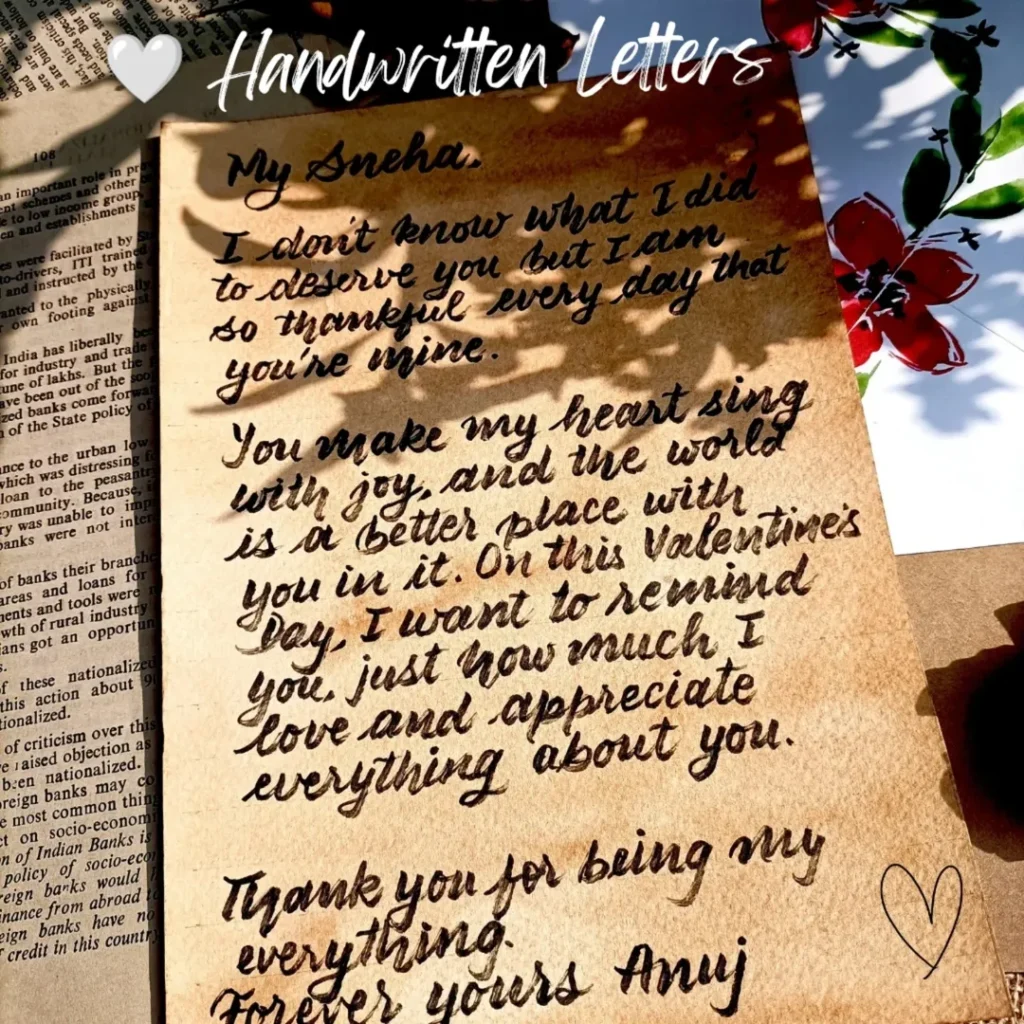 Handwritten Letters
My Sneha.
I don't know what I did
to deserve you but I am
so thankful every day that
you're mine.
You make my heart sing
with joy, and the world
is a better place with
you in it. On this Valentine's
Day, I want to remind
you, just how much I
love and appreciate
everything about you.
Thank you for being my
everything.
Forever yours Anuj
108
an important role in
schemes and other
to low income group,
en and establishments
es were facilitated by
to-drivers, ITI trained
and instructed by the
anted to the physically
own footing against
India has liberally
for industry and trade
une of lakhs. But the
ave been out of the
zed banks come
of the State policy of
ance to the urban low
which was distressing
loan to the peasantry
ommunity. Because,
ry was unable to
banks were not
of banks their
areas and loans for
ments and tools were
wth of rural industry
ians got an
s.
of these nationalized
this action about
tionalized.
of criticism over this
raised objection as
been nationalized.
oreign banks may
e most common
ct on
on of Indian Banks is
policy of
reign banks would
inance from abroad
eign banks have no
credit in this country